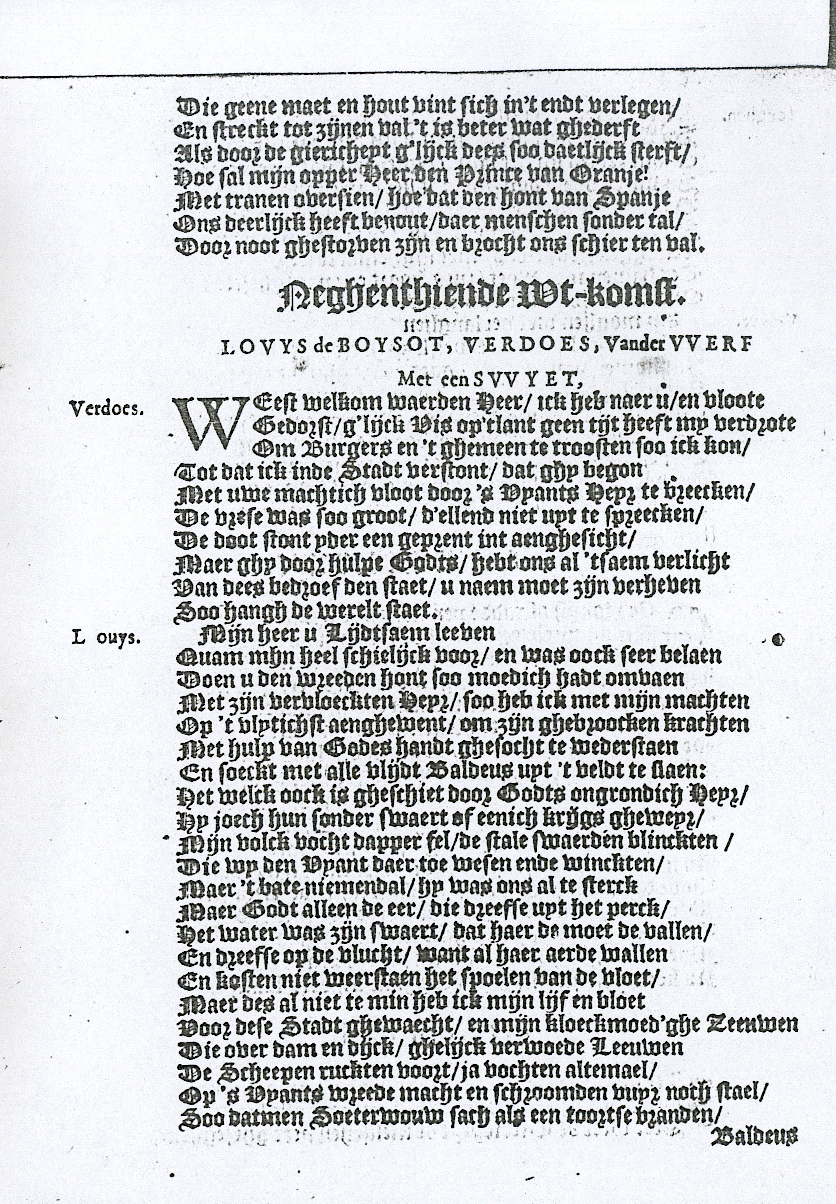 Die geene maet en hout vint sich in't endt verlegen/
En streckt tot zijnen val 't is beter wat ghederft
Als door de giericheyt g'lijck dees soo daetlijck sterft/
Hoe sal mijn opper Heer den Prince van Oranje!
Met tranen oversien/ hoe dat den hont van Spanje
Ons deerlijck heeft benout/daer menschen sonder tal/
Door noot ghestorven zijn en brocht ons schier ten val.
Neghenthiende Wt-komst.
LOVYS de BOYSOT, VERDOES, Vander VVERF
Met een SVVYET,
Verdoes. WEest welkom waerden Heer/ ick heb naer u/en vloote
Gedorst/g'lijck Vis op'tlant geen tijt heeft my verdrote
Om Burgers en 't ghemeen te troosten soo ick kon/
Tot dat ick inde Stadt verstont/ dat ghy begon
Met uwe machtich vloot door 's Vyants Heyr te breecken/
De vrese was soo groot/ d'ellend niet uyt te spreecken/
De doot stont yder een geprent int aenghesicht/
Maer ghy door hulpe Godts/ hebt ons al 'tsaem verlicht
Van dees bedroef den staet/ u naem moet zijn verheven
Soo hangh de werelt staet.
L ouys. Mijn heer u Lijdtsaem leeven
Quam mhn heel schielijck voor/ en was oock seer belaen
Doen u den wreeden hont soo moedich hadt omvaen
Met zijn vervloeckten Heyr/ soo heb ick met mijn machten
Op 't vlytichst aenghewent/ om zijn ghebroocken krachten
Met hulp van Godes handt ghesocht te wederstaen
En soeckt met alle vlijdt Baldeus uyt 't veldt te slaen:
Het welck oock is gheschiet door Godts ongrondich Heyr/
Hy joech hun sonder swaert of eenich krijgs gheweyr/
Mijn volck vocht dapper fel/de stale swaerden blinckten /
Die wy den Vyant daer toe wesen ende winckten/
Maer 't bate niemendal/ hy was ons al te sterck
Maer Godt alleen de eer/ die dreefse uyt het perck/
Het water was zijn swaert/ dat haer de moet de vallen/
En dreefse op de vlucht/ want al haer aerde wallen
En kosten niet weerstaen het spoelen van de vloet/
Maer des al niet te min heb ick mijn lijf en bloet
Voor dese Stadt ghewaecht/ en mijn kloeckmoed'ghe Zeeuwen
Die over dam en dijck/ ghelijck verwoede Leeuwen
De Scheepen ruckten voort/ja vochten altemael/
Op 's Vyants wreede macht en schroomden vuyr noch stael/
Soo datmen Soeterwouw sach als een toortse branden/
Baldeus